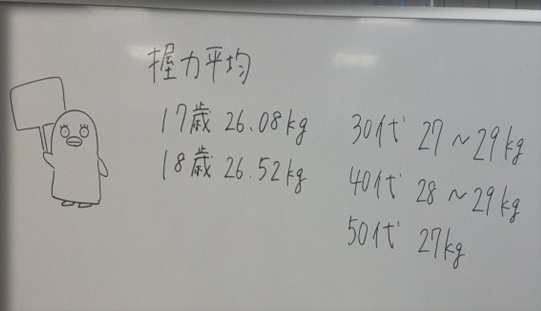 握力平均
17歳 26.08kg
18歳 26.52kg
30代 27～29kg
40代 28～29kg
50代 27kg